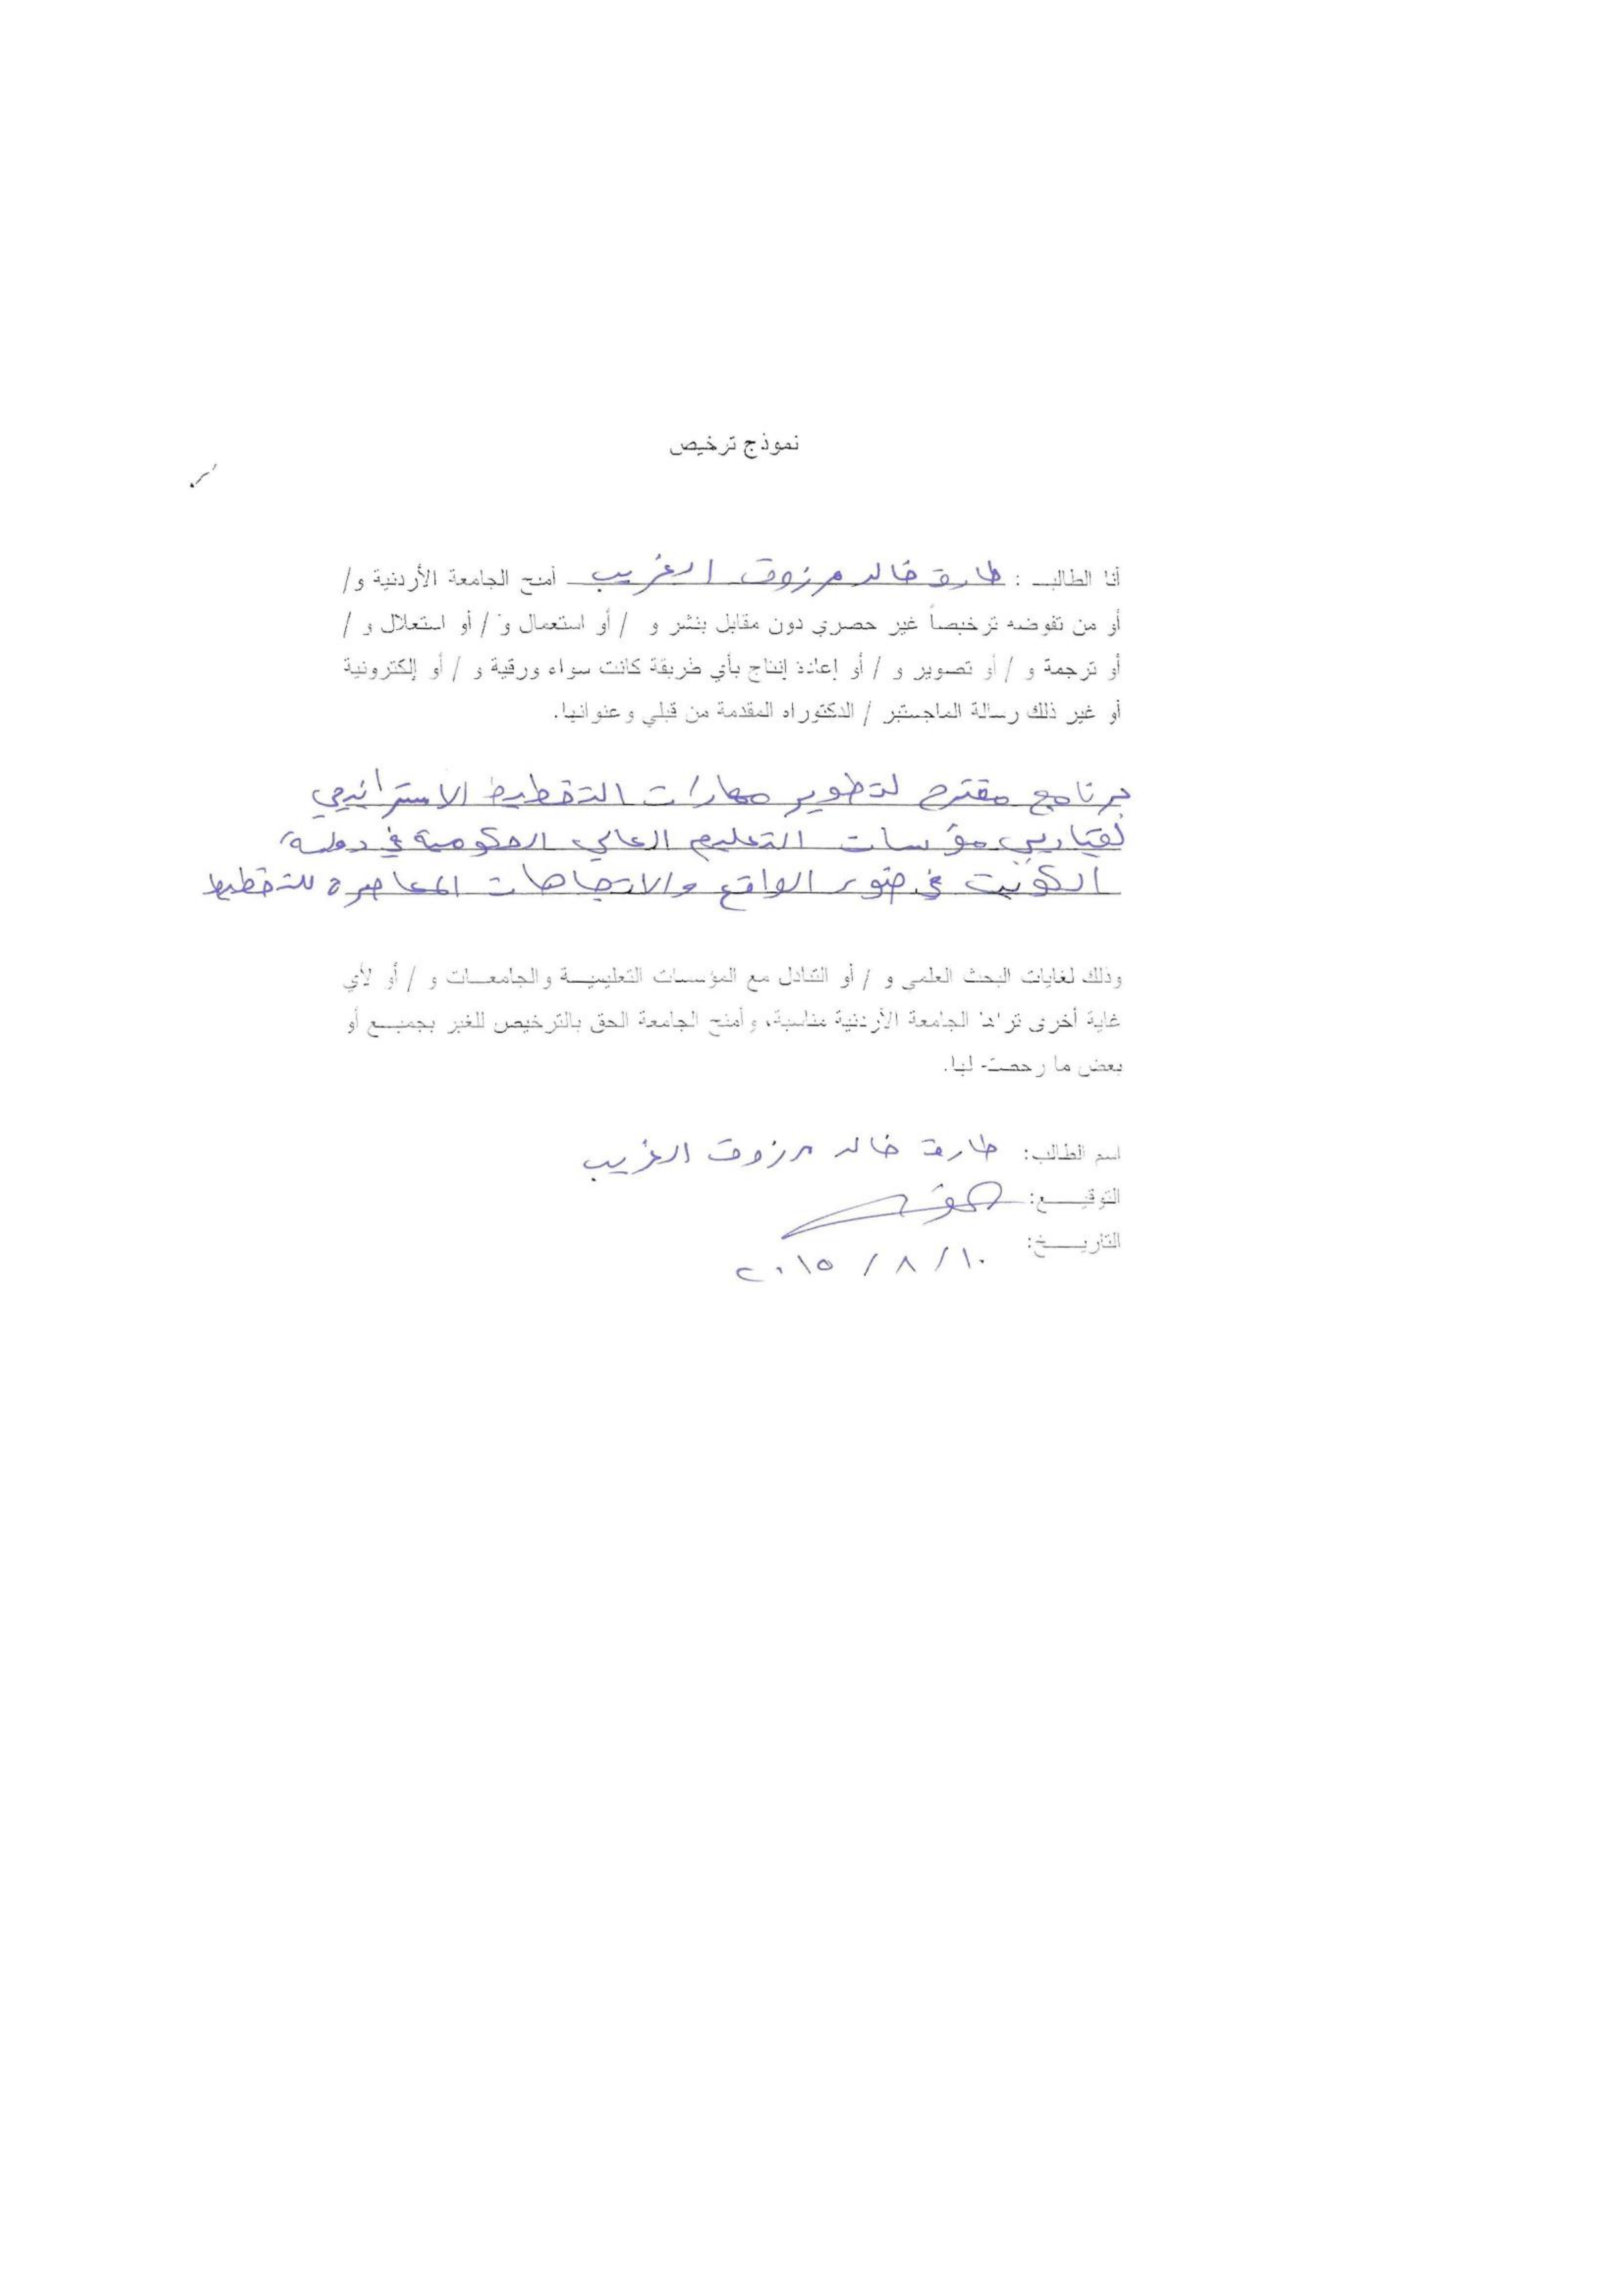 نموذج ترخيص
أنا الطالب : طارق خالد مرزوق الغريب أمنح الجامعة الأردنية و/
أو من تفوضه ترخيصاً غير حصري دون مقابل بنشر و / أو استعمال و / أو استغلال و /
أو ترجمة و / أو تصوير و / أو إعادة إنتاج بأي طريقة كانت سواء ورقية و / أو إلكترونية
أو غير ذلك رسالة الماجستير / الدكتوراه المقدمة من قبلي وعنوانها.
برنامج مقترح لتطوير مهارات التخطيط الاستراتيجي
لقياديي مؤسسات التعليم العالي الحكومية في دولة
الكويت في ضوء الواقع والاتجاهات المعاصرة للتخطيط
وذلك لغايات البحث العلمي و / أو التبادل مع المؤسسات التعليميـــة والجامعـــات و / أو لأي
غاية أخرى تراها الجامعة الأردنية مناسبة، وأمنح الجامعة الحق بالترخيص للغير بجميـــع أو
بعض ما رخصته لها.
اسم الطالب: طارق خالد مرزوق الغريب
التوقيـــع:
التاريـــخ: ١٠ / ٨ / ٢٠١٥